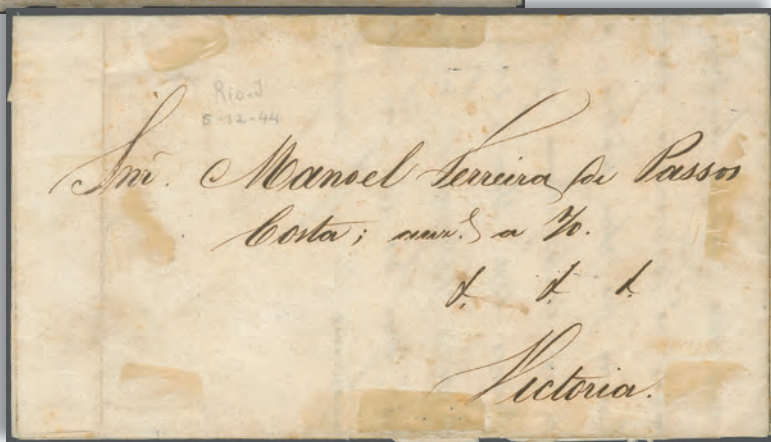 Rio-J
5-12-44
Snr. Manoel Ferreira de Passos
Costa; a
Victoria.